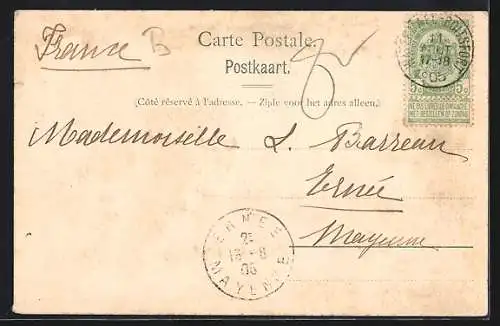 France B
Carte Postale.
Postkaart.
(Côté réservé à l'adresse. — Zijde voor het adres alleen.)
Mademoiselle L. Barreau
Ernée
Mayenne
11
AOUT
17-18
05
5c 5c
NE PAS LIVRER LE DIMANCHE
NIET BESTELLEN OP ZONDAG
ERNÉE
05
MAYENNE